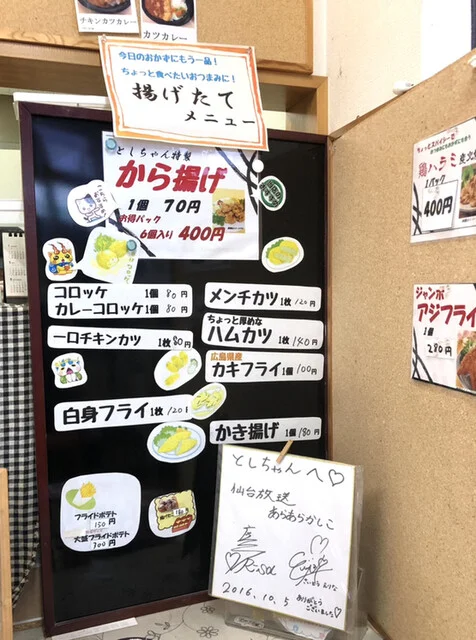 チキンカツカレー
カツカレー
今日のおかずにもう一品!
ちょっと食べたいおつまみに!
揚げたて
メニュー
としちゃん特製
から揚げ
1個 70円
お得パック
6個入り 400円
コロッケ 1個 80円
カレーコロッケ 1個 80円
一口チキンカツ 1枚 80円
白身フライ 1枚 120円
メンチカツ 1枚 120円
ちょっと厚めな
ハムカツ 1枚 140円
広島県産
カキフライ 1個 100円
かき揚げ 1個 180円
フライドポテト
150円
大盛フライドポテト
300円
鶏ハラミ
1パック
400円
ジャンボ
アジフライ
1個
280円
としちゃんへ♡
仙台放送
あらあらかしこ
2016.10.5
ありがとう
ございました♡